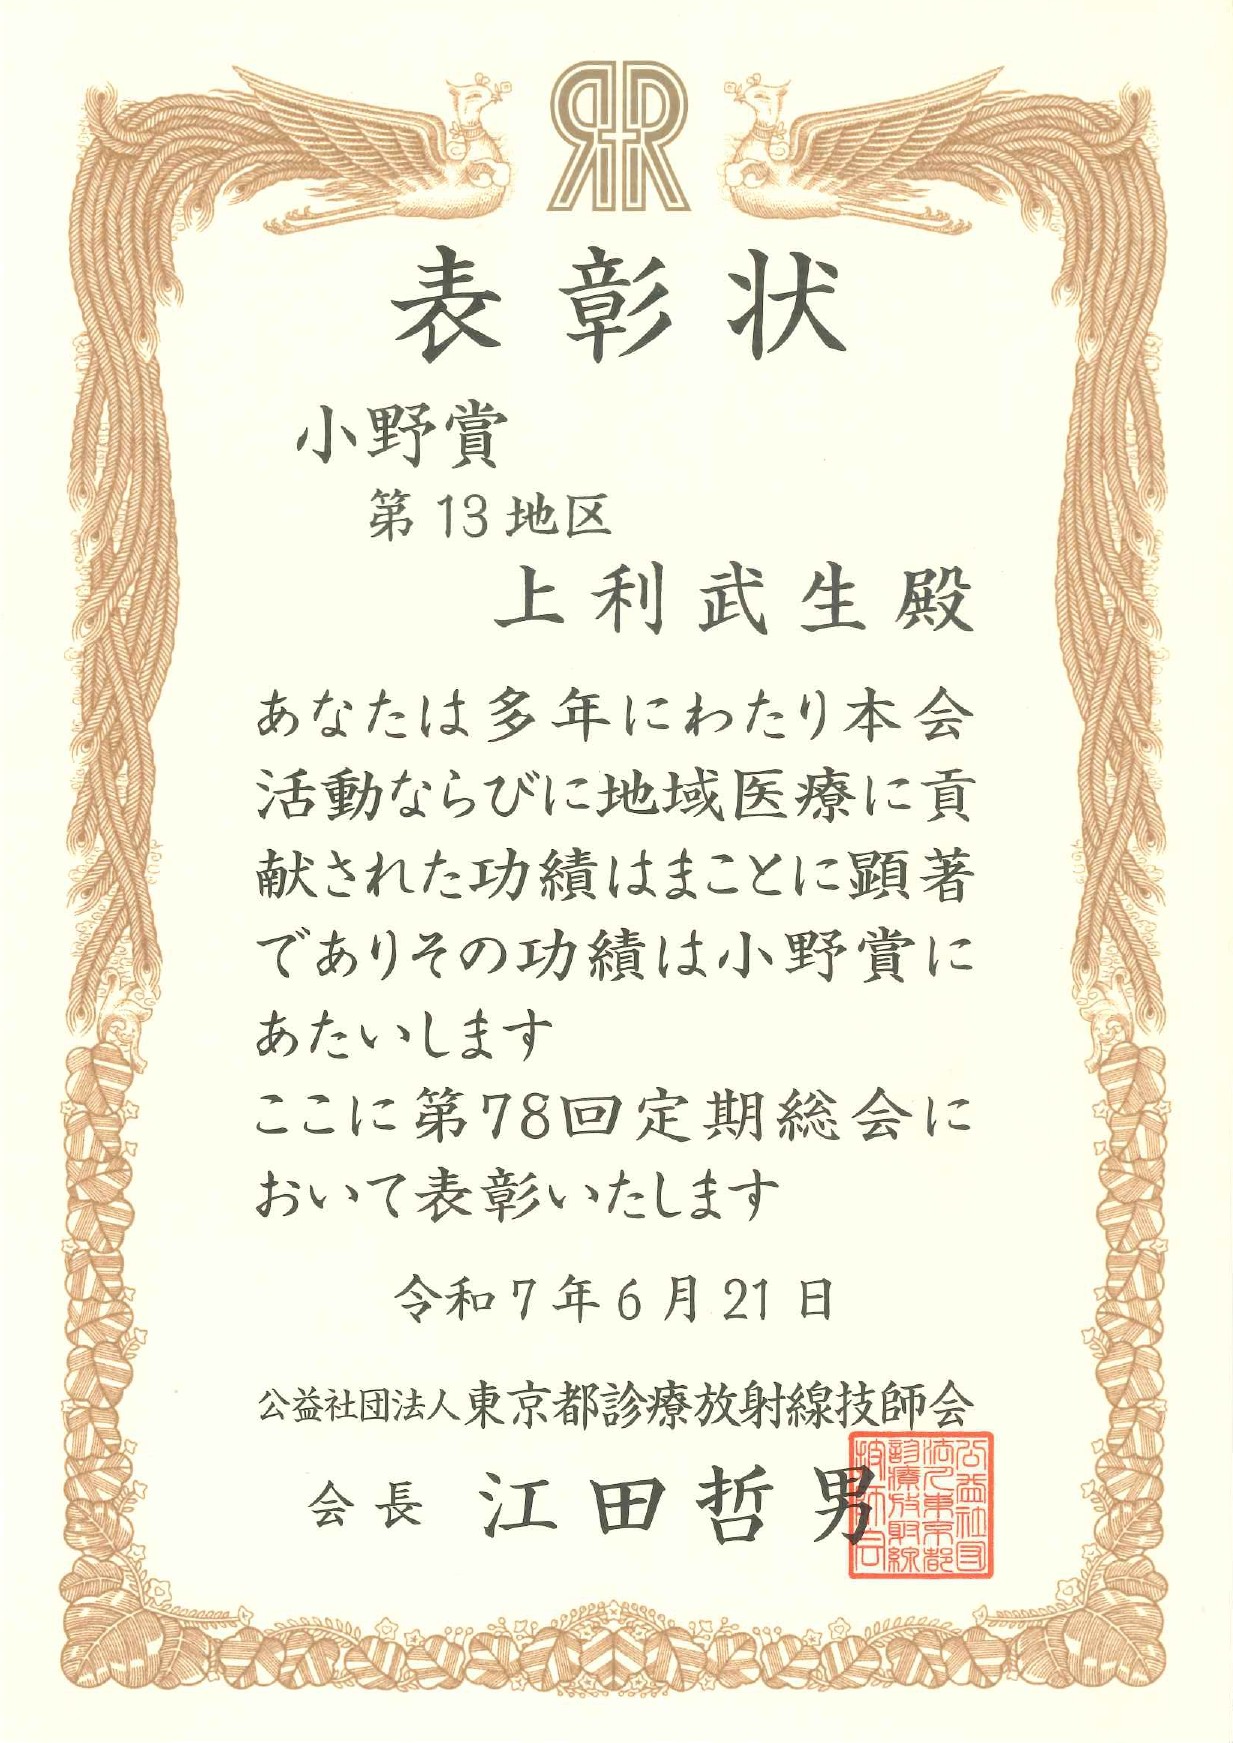 表彰状
小野賞
第13地区
上利武生殿
あなたは多年にわたり本会
活動ならびに地域医療に貢
献された功績はまことに顕著
でありその功績は小野賞に
あたいします
ここに第78回定期総会に
おいて表彰いたします
令和7年6月21日
公益社団法人東京都診療放射線技師会
会長 江田哲男
公益社団
法人東京都
診療放射線
技師会